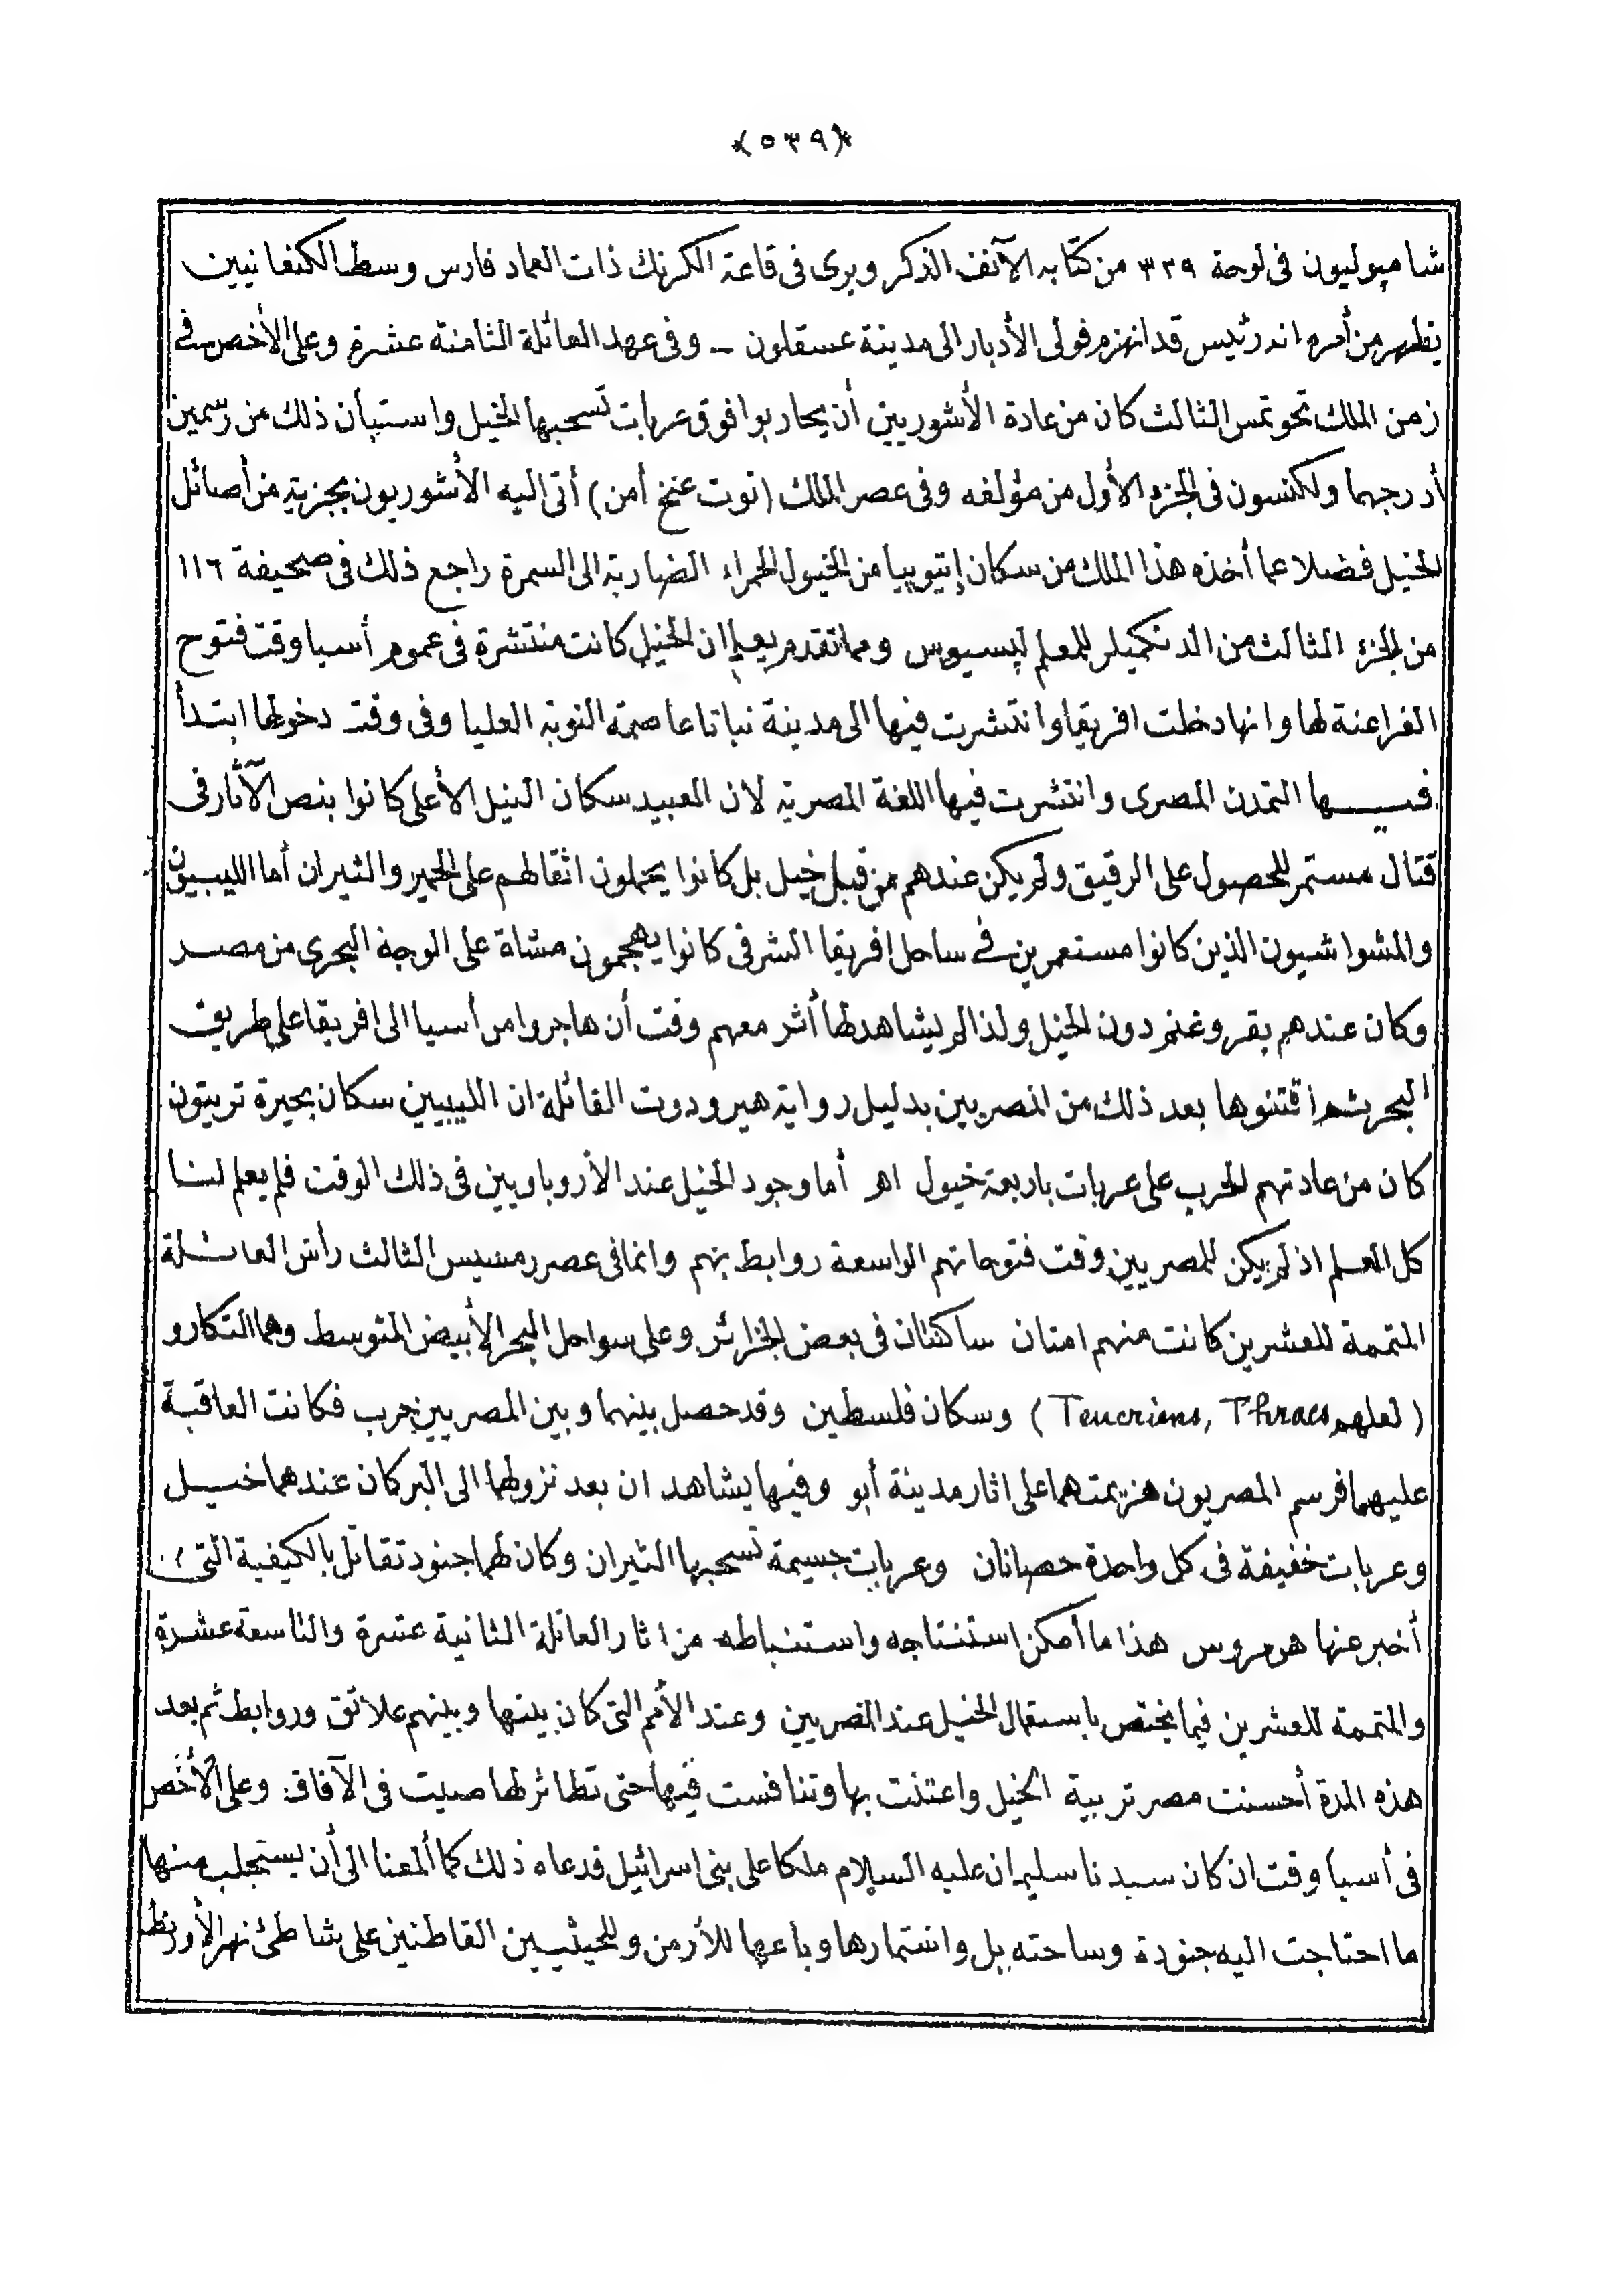 ﴿٥٣٩﴾
شامپوليون فى لوحة ٣٣٩ من كتابه الآنف الذكر ويرى فى قاعة الكرنك ذات العماد فارس وسط الكنعانيين
يظهر من أمره انه رئيس قد انهزم فولى الأدبار الى مدينة عسقلون ـ وفى عهد العائلة الثامنة عشرة وعلى الأخص فى
زمن الملك تحوتمس الثالث كان من عادة الأشوريين أن يحاربوا فوق عربات تسحبها الخيل واستبان ذلك من رسمين
أدرجهما ولكنسون فى الجزء الأول من مؤلفه وفى عصر الملك (توت عنخ أمن) أتى اليه الأشوريون بجزية من أصائل
الخيل فضلا عما أخذه هذا الملك من سكان إيتوپيا من الخيول الحمراء الضاربة الى السمرة راجع ذلك فى صحيفة ١١٦
من الجزء الثالث من الدنكميلر للمعلم لپسيوس ومما تقدم يعلم ان الخيل كانت منتشرة فى عموم أسيا وقت فتوح
الفراعنة لها وانها دخلت افريقا وانتشرت فيها الى مدينة نباتا عاصمة النوبة العليا وفى وقت دخولها ابتدأ
فيها التمدن المصرى وانتشرت فيها اللغة المصرية لان العبيد سكان النيل الأعلى كانوا بنص الآثار فى
قتال مستمر للحصول على الرقيق ولم يكن عندهم من قبل خيل بل كانوا يحملون اثقالهم على الحمير والثيران أما الليبيون
والمشواشيون الذين كانوا مستعمرين فى ساحل افريقا الشرقى كانوا يهجمون مشاة على الوجه البحرى من مصر
وكان عندهم بقر وغنم دون الخيل ولذا لم يشاهد لها أثر معهم وقت أن هاجروا من أسيا الى افريقا على طريق
البحر ثم اقتنوها بعد ذلك من المصريين بدليل رواية هيرودوت القائلة ان الليبيين سكان بحيرة تريتون
كان من عادتهم الحرب على عربات باربعة خيول اهر أما وجود الخيل عند الأروباويين فى ذلك الوقت فلم يعلم لنا
كل العلم اذ لم يكن للمصريين وقت فتوحاتهم الواسعة روابط بهم وانما فى عصر رمسيس الثالث رأس العائلة
المتممة للعشرين كانت منهم امتان ساكنتان فى بعض الجزائر وعلى سواحل البحر الأبيض المتوسط وهما التكارو
(لعلهم Teucriens, Thraces) وسكان فلسطين وقد حصل بينهما وبين المصريين حرب فكانت العاقبة
عليهما فرسم المصريون هزيمتهما على اثار مدينة أبو وفيها يشاهد ان بعد نزولهما الى البر كان عندهما خيل
وعربات خفيفة فى كل واحدة حصانان وعربات جسيمة تسحبها الثيران وكان لهما جنود تقاتل بالكيفية التى
أخبر عنها هوميروس هذا ما أمكن استنتاجه واستنباطه من اثار العائلة الثانية عشرة والتاسعة عشرة
والمتممة للعشرين فيما يختص باستعمال الخيل عند المصريين وعند الأمم التى كان بينها وبينهم علائق وروابط ثم بعد
هذه المدة أحسنت مصر تربية الخيل واعتنت بها وتنافست فيها حتى تطائر لها صيت فى الآفاق وعلى الأخص
فى أسيا وقت ان كان سيدنا سليمان عليه السلام ملكا على بنى اسرائيل فدعاه ذلك كما ألمعنا الى أن يستجلب منها
ما احتاجت اليه جنوده وساحته بل واستمارها وباعها للأرمن وللحيثيين القاطنين على شاطئ نهر الأورنط